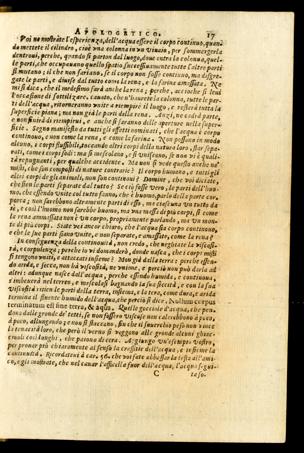 APOLOGETICO. 17
Poi ne mostrate l'esperienza, dell'acqua essere il corpo continuo, quan
do mettete il cilindro, cioè una colonna in un vivaio, per sommergerla
dentroui, perche, quando si parton dal luogo, doue entra la colonna, quel-
le parti, che occupauano quello spatio successiuamente tutte l'altre parti
si mutano; il che non fariano, se il corpo non fosse continuo, ma disgre-
gate le parti, e diuise dal tutto come la rena, e la farina ammassata. Ne
mi si dica, che il medesimo farà anche la rena; perche, accioche si leui
l'occasione di sofisticare, cauato, che n'haurete la colonna, tutte le par-
ti dell'acqua, ritorneranno vnite a riempire il luogo, e resterà tutta la
superficie piana; ma non già le parti della rena. Anzi, ne cadrà parte,
e non finirà di riempirsi, e anche si faranno delle aperture nella super-
ficie. Segno manifesto da tutti gli effetti nominati, che l'acqua è corpo
continuo, e non come la rena, e come la farina. Non possono in modo
alcuno, i corpi flussibili, toccando altri corpi della natura loro, star sepa-
rati, come i corpi sodi: ma si mescolano, e si vniscono, se non vi è quali-
tà repugnanti, per qualche accidente. Ma non si vede questo anche ne'
misti, che son composti di nature contrarie? Il corpo humano, e tutti gli
altri corpi degli animali, non son contenuti?
che sien le parti separate dal tutto? Se ciò fosse vero, le parti dell'huo-
mo, che essendo vnite col tutto fanno, che è huomo, parlo della parte cor-
porea, non sarebbono altramente parti di esso, ma ciascuna vn tutto da
se, e l'huomo non sarebbe huomo, ma vna massa di più corpi, sì come
la rena ammassata non è vn corpo, propriamente parlando, ma vn mon-
te di più corpi. State voi ancor chiaro, che l'acqua sia corpo continuo,
e che le sue parti siano vnite, e non separate, e ammassate, come la rena?
In conseguenza della continuità, non credo, che negherete la viscosi-
tà, e corpulenza; perche io vi domanderò, donde nasca, che i corpi misti
si tengono vniti, e attaccati insieme? Non già dalla terra; perche essen-
do arida, e secca, non hà viscosità, ne vnione, e perciò non può darla ad
altri: adunque nasce dall'acqua, perche essendo humida, e continua,
s'imbeuera nel terreno, e mescolasi bagnando la sua siccità, e con la sua
viscosità vnisce le parti della terra, insieme, e la tero, come dura, e arida
termina il flussente humido dell'acqua, che perciò si dice, Nullum corpus
terminatum est sine terra, & aqua. Quelle gocciole d'acqua, che pen-
don dalle gronde de' tetti, se non fossero viscose non calerebbono a poco,
a poco, allungando, e non si staccano, fin che il souerchio peso non vince
li tenacità loro, che però il verno si veggono alle gronde alcuni ghiac-
ciuoli così lunghi, che paiono di cera. Aggiungo vn'esempio vostro,
per prouar più chiaramente al senso la crassitie dell'acqua, e insieme la
continuità. Ricordateui à car. 56. che voi fate abbassar la testa all'ami-
co, e gli mostrate, che nel cauar l'assicella fuor dell'acqua, l'acqua segui-
C taso.